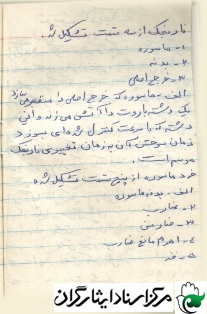 نارنجک از سه قسمت تشکیل شده.
۱- ماسوره
۲- بدنه
۳- خرج اصلی
الف- ماسوره که خرج اصلی را منفجر می‌سازد
یک دشته باروت را آتش می‌زند و این
دشته که با سرعت کنترل شده‌ای میسوزد
زمان سوختن آن به زمان تأخیری نارنجک
موسوم است.
خود ماسوره از پنج قسمت تشکیل شده
الف- بدنه ماسوره
۲- ضارب
۳- ضامن
۴- اهرم مانع ضارب
۵- فنر
مرکز اسناد ایثارگران